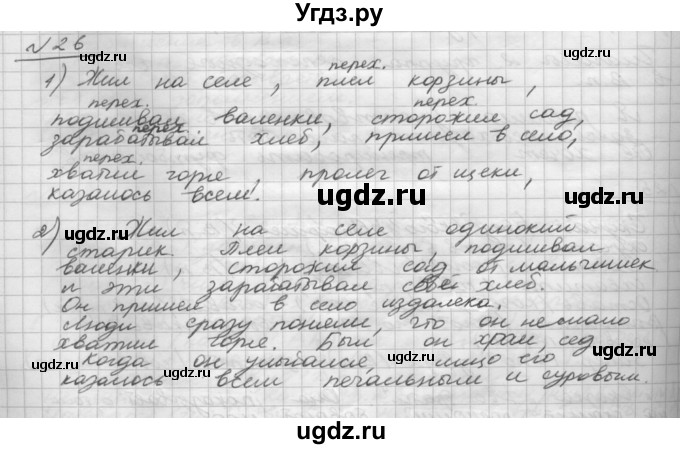 Угдз.ру
№26
перех.
1) Жил на селе, плел корзины,
перех. перех.
подшивал валенки, сторожил сад,
перех.
зарабатывал хлеб, пришел в село,
перех.
хватил горе, пролег от щеки,
казалось всем.
2) Жил на селе одинокий
старик. Плел корзины, подшивал
валенки, сторожил сад от мальчишек
и эти зарабатывал свой хлеб.
Он пришел в село издалека.
Люди сразу поняли, что он немало
хватил горе. Был он хром, сед
Когда он улыбался, лицо его
казалось всем печальным и суровым.
ugdz.ru ugdz.ru ugdz.ru
ugdz.ru
ugdz.ru
ugdz.ru
ugdz.ru
ugdz.ru
ugdz.ru ugdz.ru
ugdz.ru
ugdz.ru